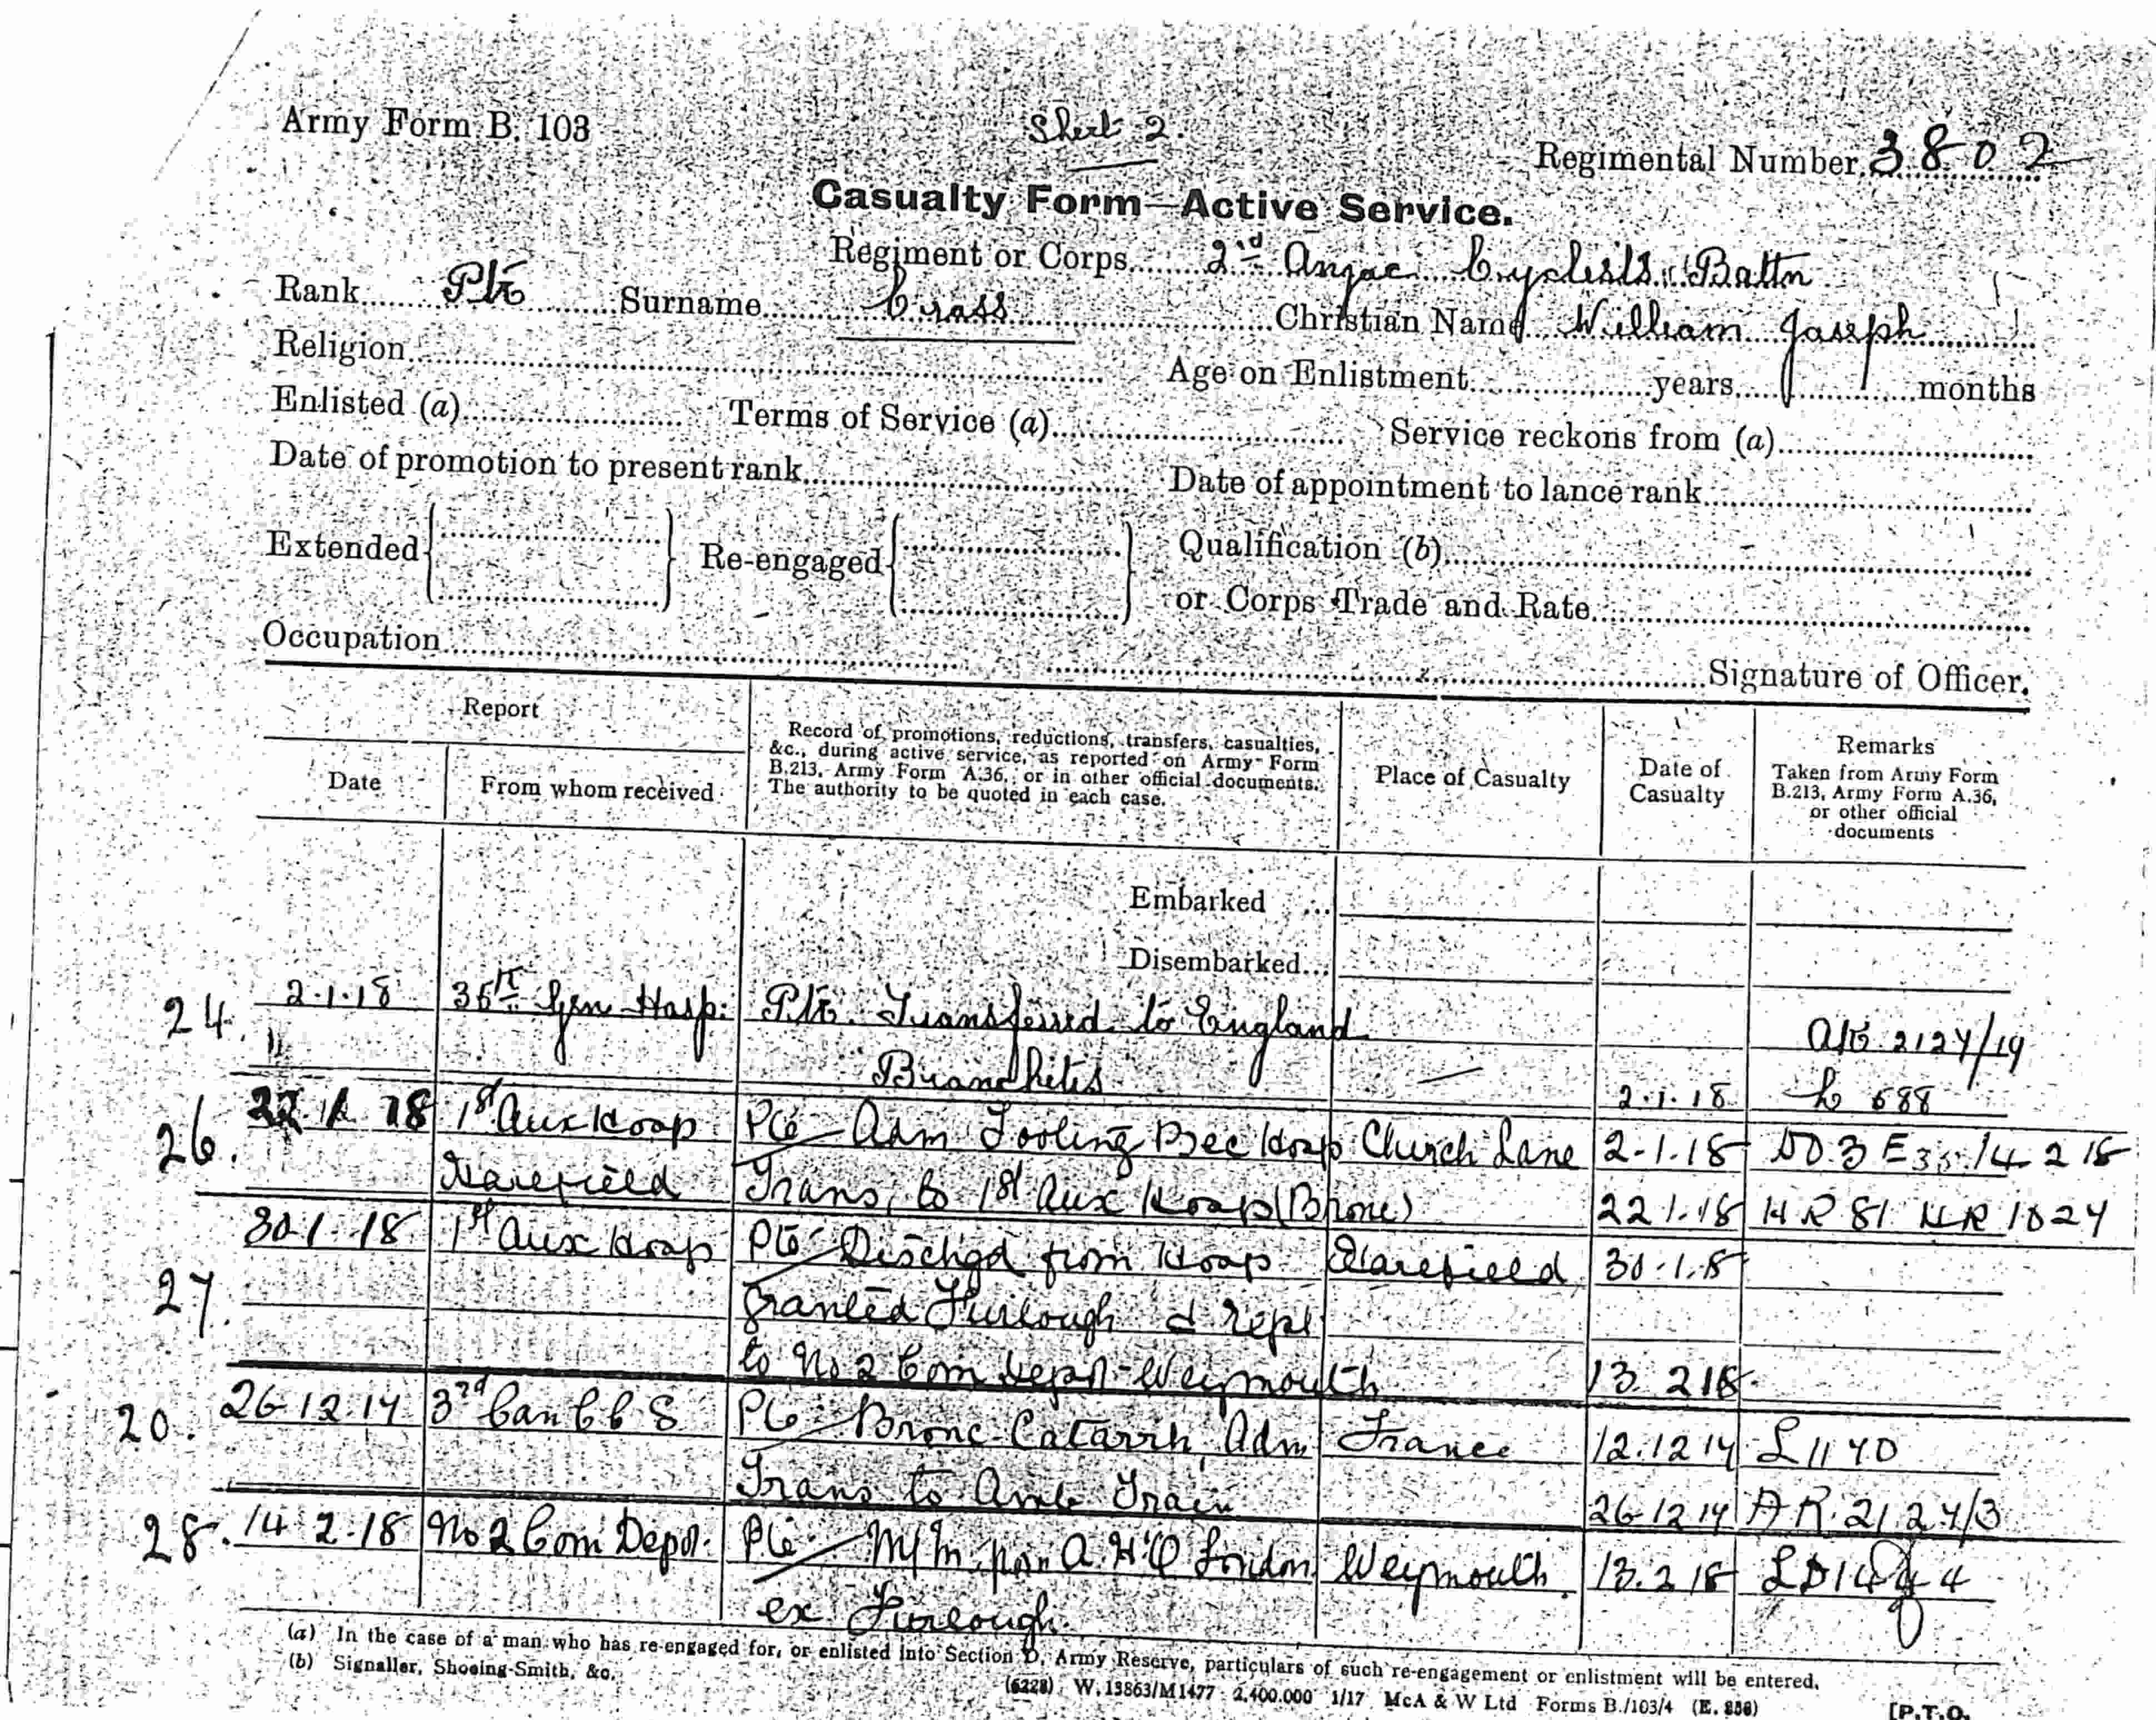 Army Form B. 103
Sheet 2.
Regimental Number 3802
Casualty Form—Active Service.
Regiment or Corps 2nd Anzac Cyclists Battn
Rank Pte Surname Crass Christian Name William Joseph
Religion Age on Enlistment years months
Enlisted (a) Terms of Service (a) Service reckons from (a)
Date of promotion to present rank Date of appointment to lance rank
Extended Re-engaged Qualification (b)
or Corps Trade and Rate
Occupation
Signature of Officer.
Report
Date From whom received
Record of promotions, reductions, transfers, casualties,
&c., during active service, as reported on Army Form
B.213, Army Form A.36, or in other official documents.
The authority to be quoted in each case.
Place of Casualty
Date of
Casualty
Remarks
Taken from Army Form
B.213, Army Form A.36,
or other official
documents
Embarked ...
Disembarked...
24. 2.1.18 35th Gen Hosp. Pte. Transferred to England
Bronchitis — 2.1.18 688
26. 22 1 18 1st Aux Hosp Pte Adm Tooting Bec Hosp Church Lane 2.1.18 DO.3 E35. 14 2 18
Harefield Trans, to 1st Aux Hosp (Bronc) 22 1.18 HR 81 HR 1827
27. 30.1.18 1st Aux Hosp Pte Dischgd from Hosp Harefield 30.1.18
granted Furlough & rept
to No 2 Com Depot Weymouth 13. 2 18.
20. 26.12.17 3rd Can C C S Pte Bronc Catarrh Adm France 12.12 17 L 1170
Trans to Amb Train 26 12 17 A R. 2127/3
28. 14 2.18 No 2 Com Depot. Pte M/In from A.H.Q London Weymouth. 13.2 18
ex Furlough.
(a) In the case of a man who has re-engaged for, or enlisted into Section D, Army Reserve, particulars of such re-engagement or enlistment will be entered.
(b) Signaller, Shoeing-Smith, &c.
(6228) W. 13863/M1477 2,400,000 1/17 McA & W Ltd Forms B./103/4 (E. 856)
[P.T.O.